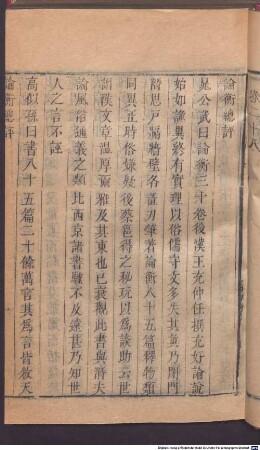 論衡總評
晁公武曰論衡三十卷後漢王充仲任撰充好論說
始如詭異終有實理以俗儒守文多失其真乃閉門
潛思戶牖墻壁各置刀筆著論衡八十五篇釋物類
同異正時俗嫌疑後蔡邕得之秘玩以為談助云世
謂漢文章溫厚爾雅及其東也已衰觀此書與潛夫
論風俗通義之類比西京諸書驟不及遠甚乃知世
人之言不誣
高似孫曰書八十五篇二十餘萬言其為言皆敘天